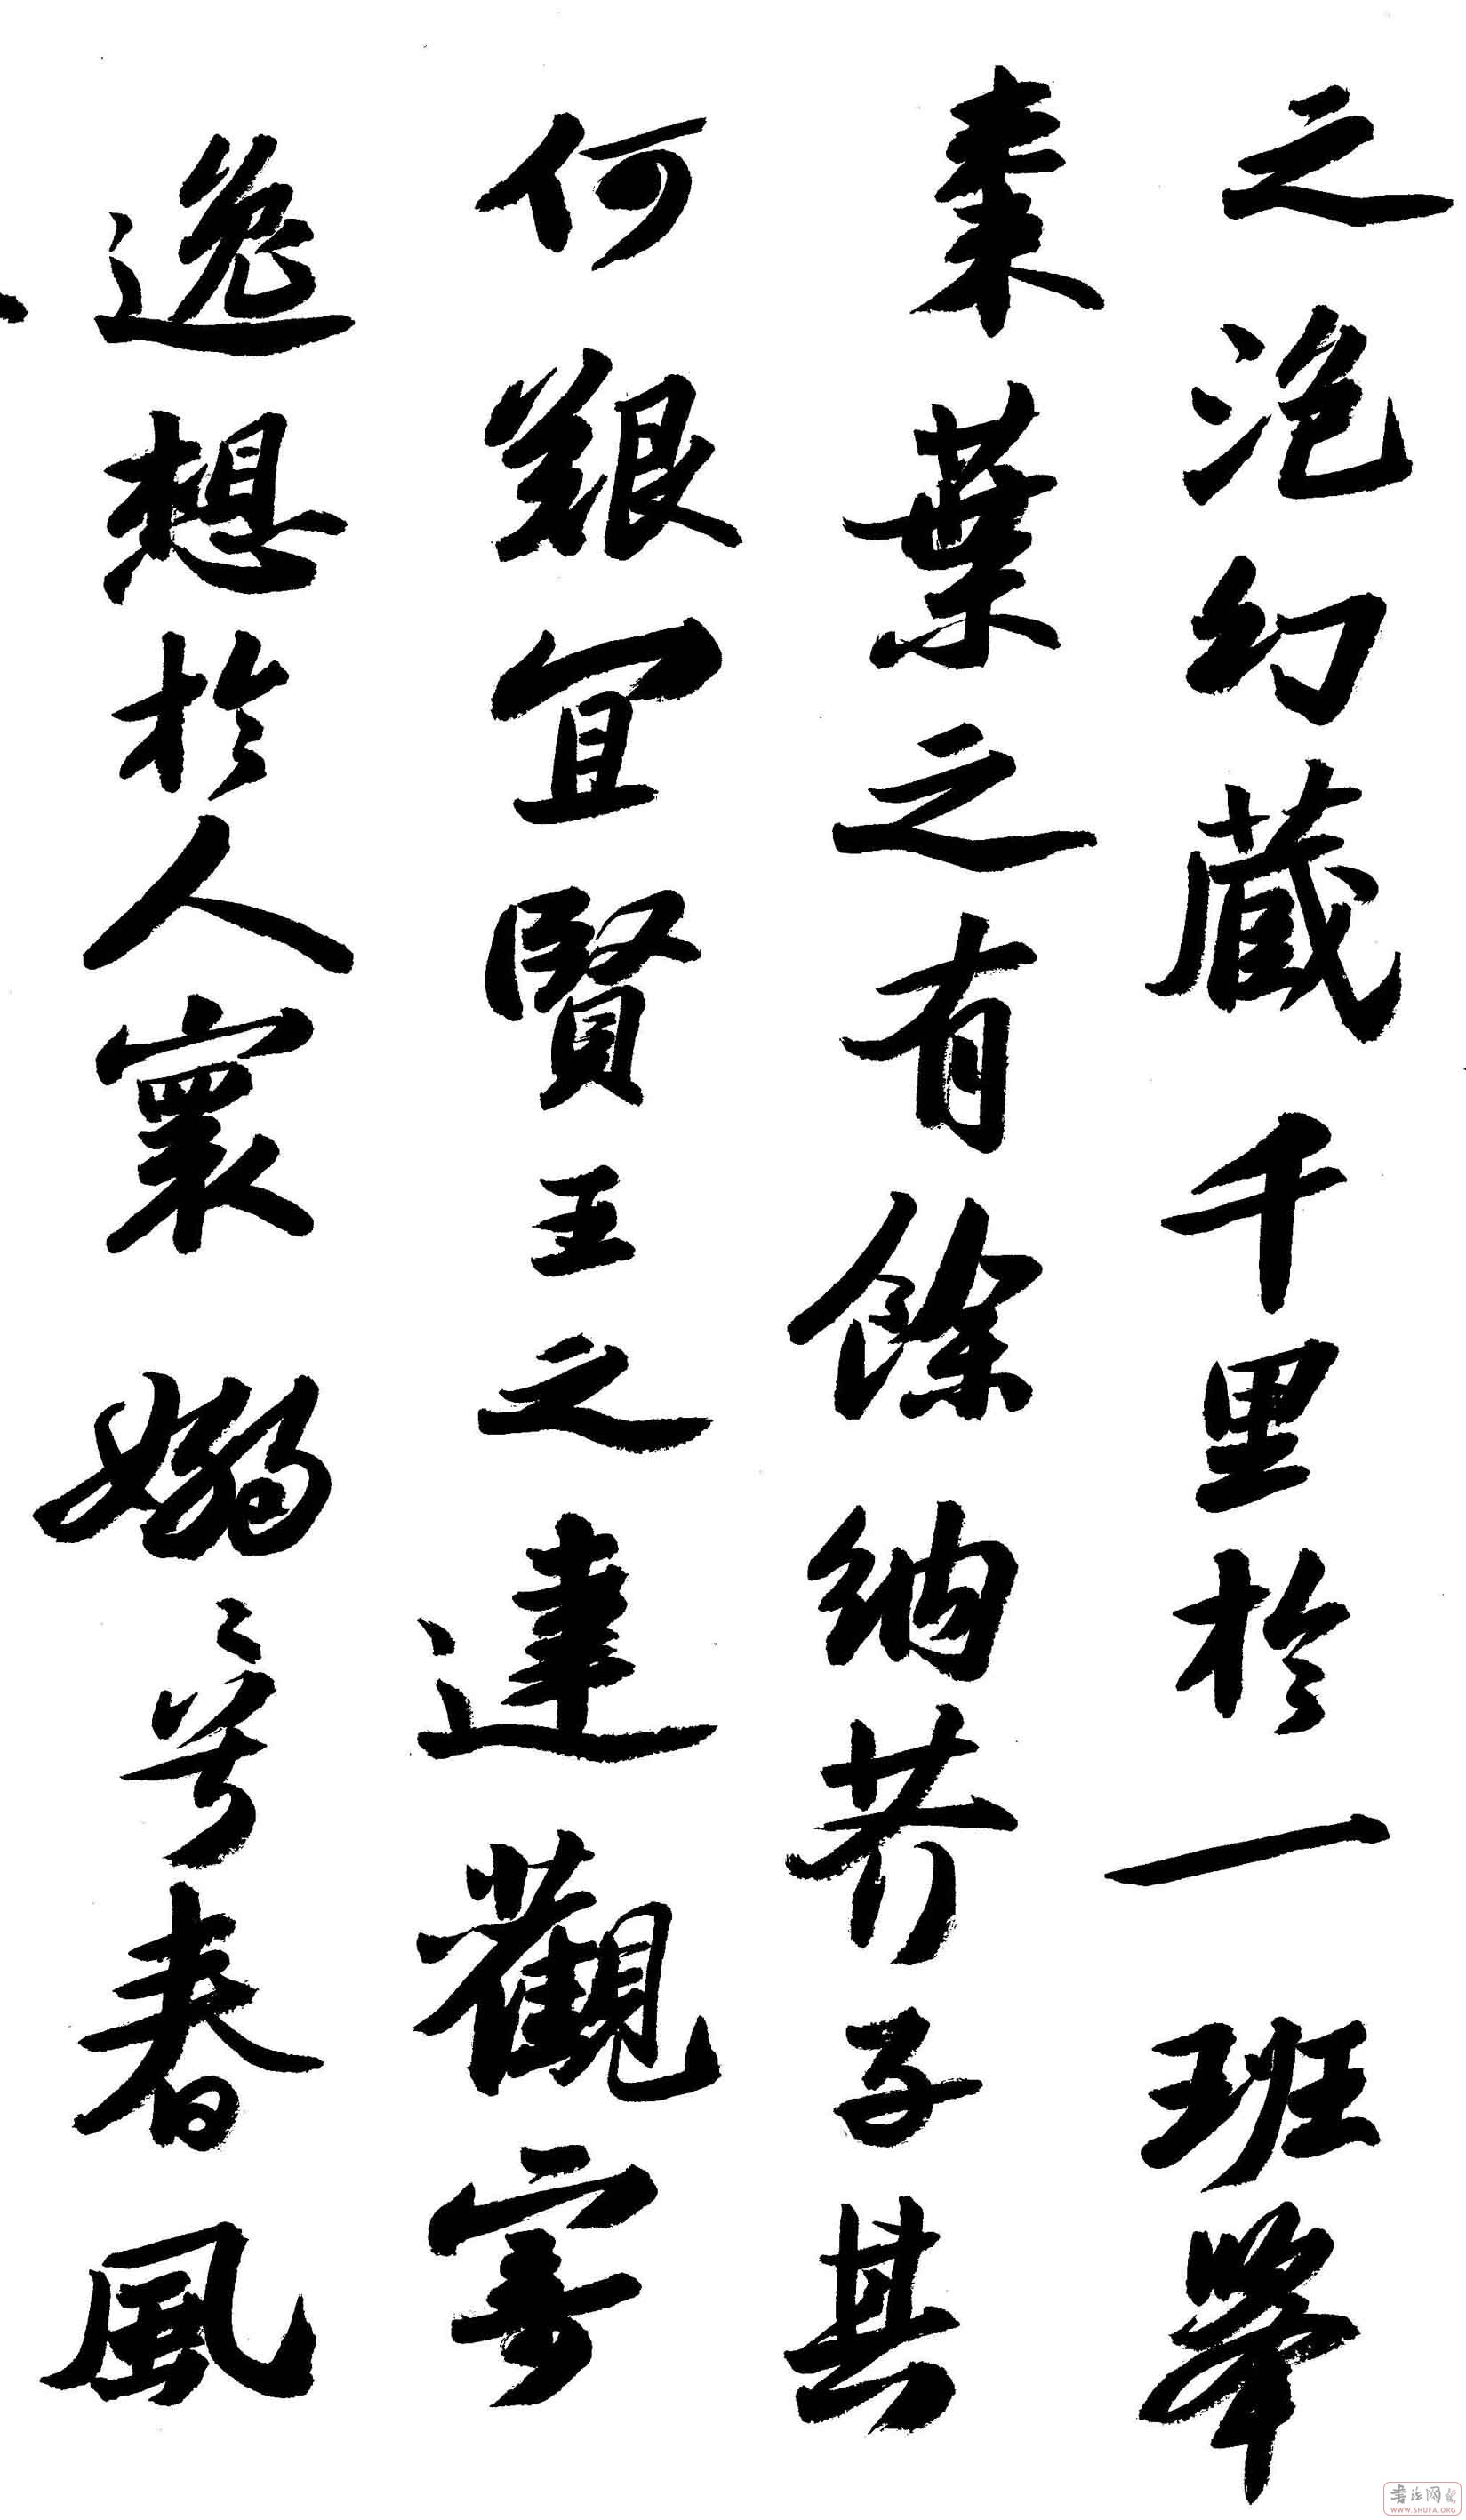 之泡幻藏千里於一班舉
棗葉之有餘納芥子其
何艱宜賢王之達觀寄
逸想於人寰嫋〻兮春風
WWW.SHUFA.ORG